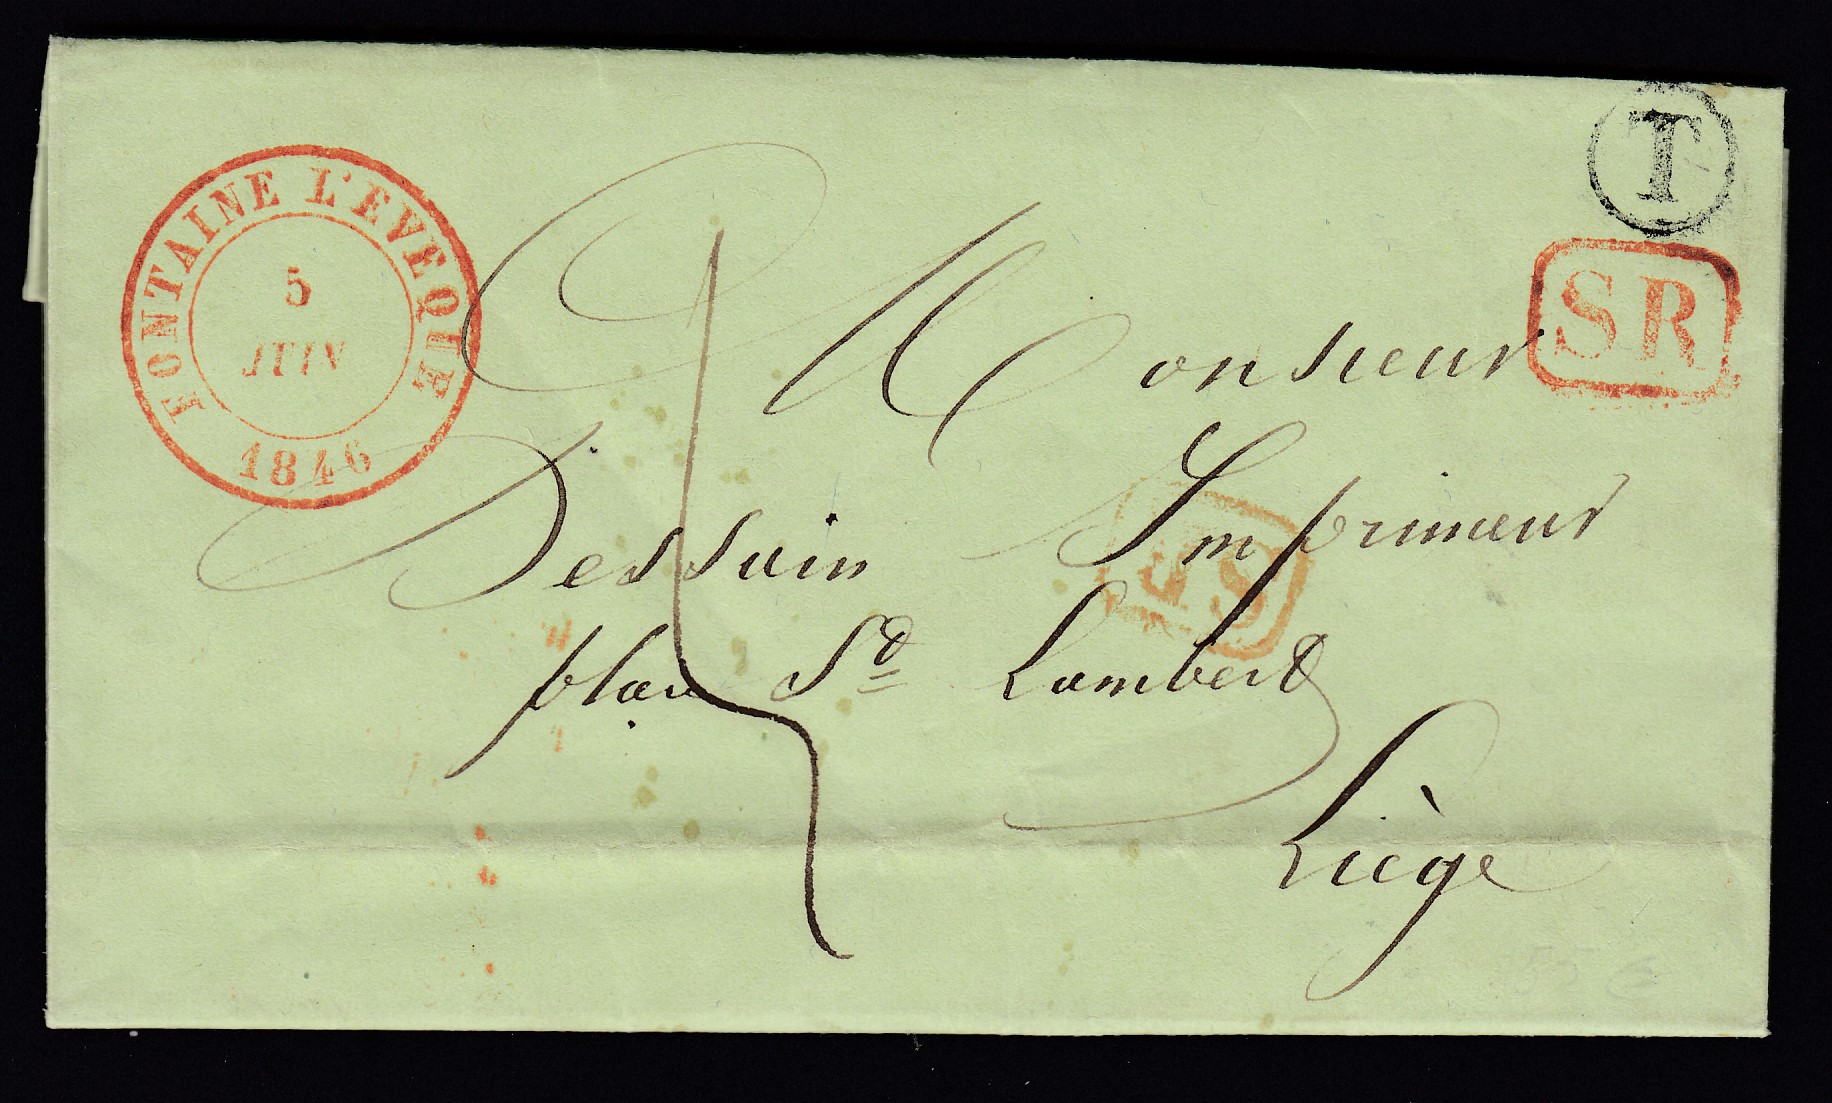 T
SR
FONTAINE L'EVEQUE
5
JUIN
1846
Monsieur
Dessain Imprimeur
SR
place St Lambert
Liège